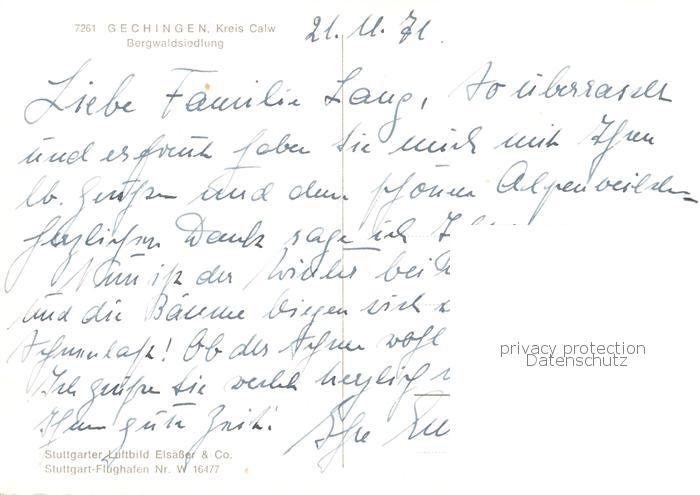 7261 GECHINGEN, Kreis Calw
Bergwaldsiedlung
21.11.71.
Liebe Familie Lang, so überrascht
und erfreut haben Sie mich mit Ihren
lb. Grüßen und dem schönen Alpenveilchen
herzlichen Dank sage ich
Nun ist der Winter bei
und die Bäume biegen sich
Schneelast! Ob der Schnee wohl
Ich grüße Sie herzlich
Ihnen gute Zeit!
Ihre
privacy protection
Datenschutz
Stuttgarter Luftbild Elsäßer & Co.
Stuttgart-Flughafen Nr. W 16477